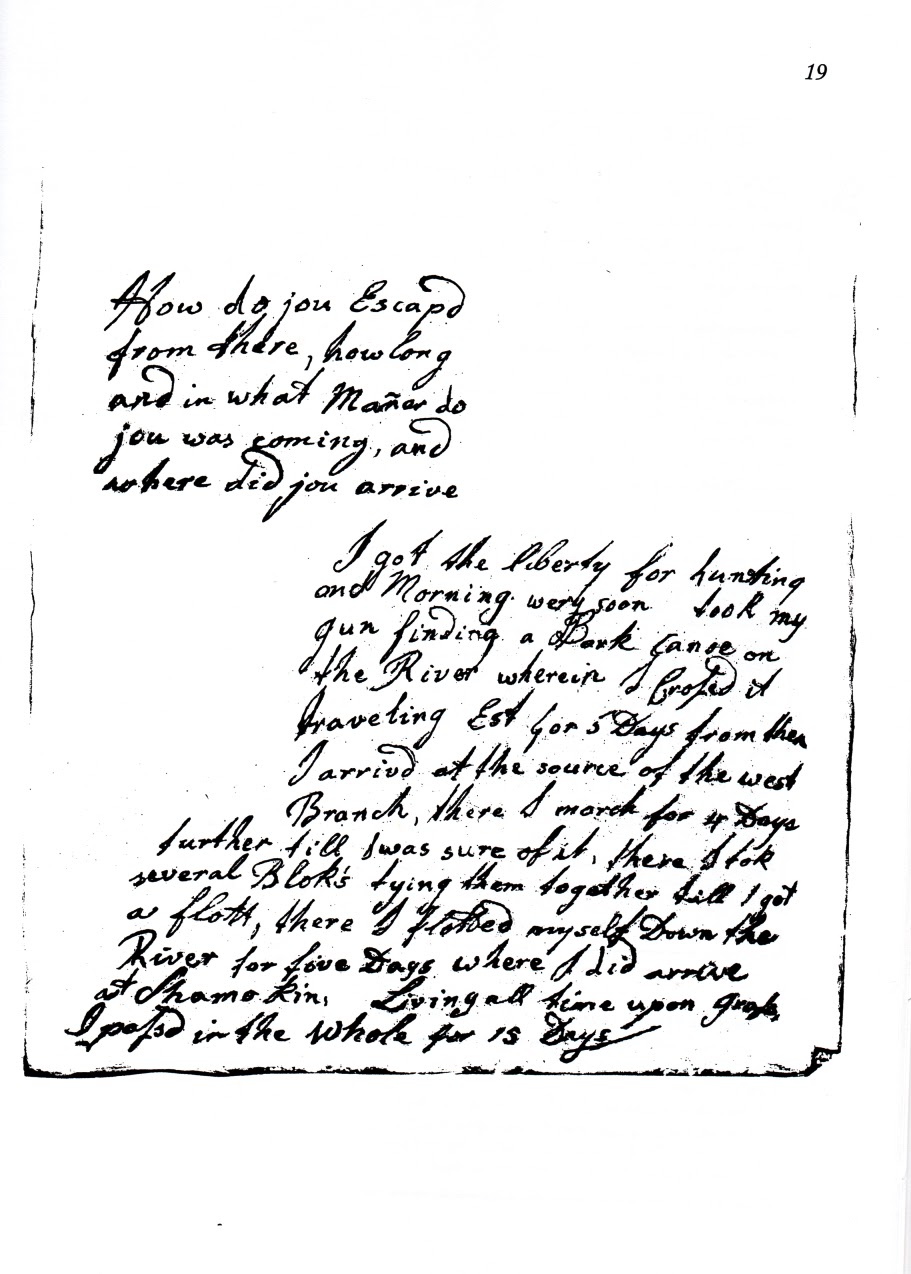 19
How do jou Escapd
from there, how long
and in what Mañer do
jou was coming, and
where did jou arrive
I got the liberty for hunting
one Morning wery soon took my
gun finding a Bark Canoe on
the River wherein I Crosed it
traveling Est for 5 Days from then
I arrivd at the source of the west
Branch, there I march for 4 Days
further till I was sure of it, there I tok
several Bloks tying them together till I got
a flott, there I flotted myself Down the
River for five Days where I did arrive
at Shamokin, Living all time upon grass,
I passd in the whole for 15 Days